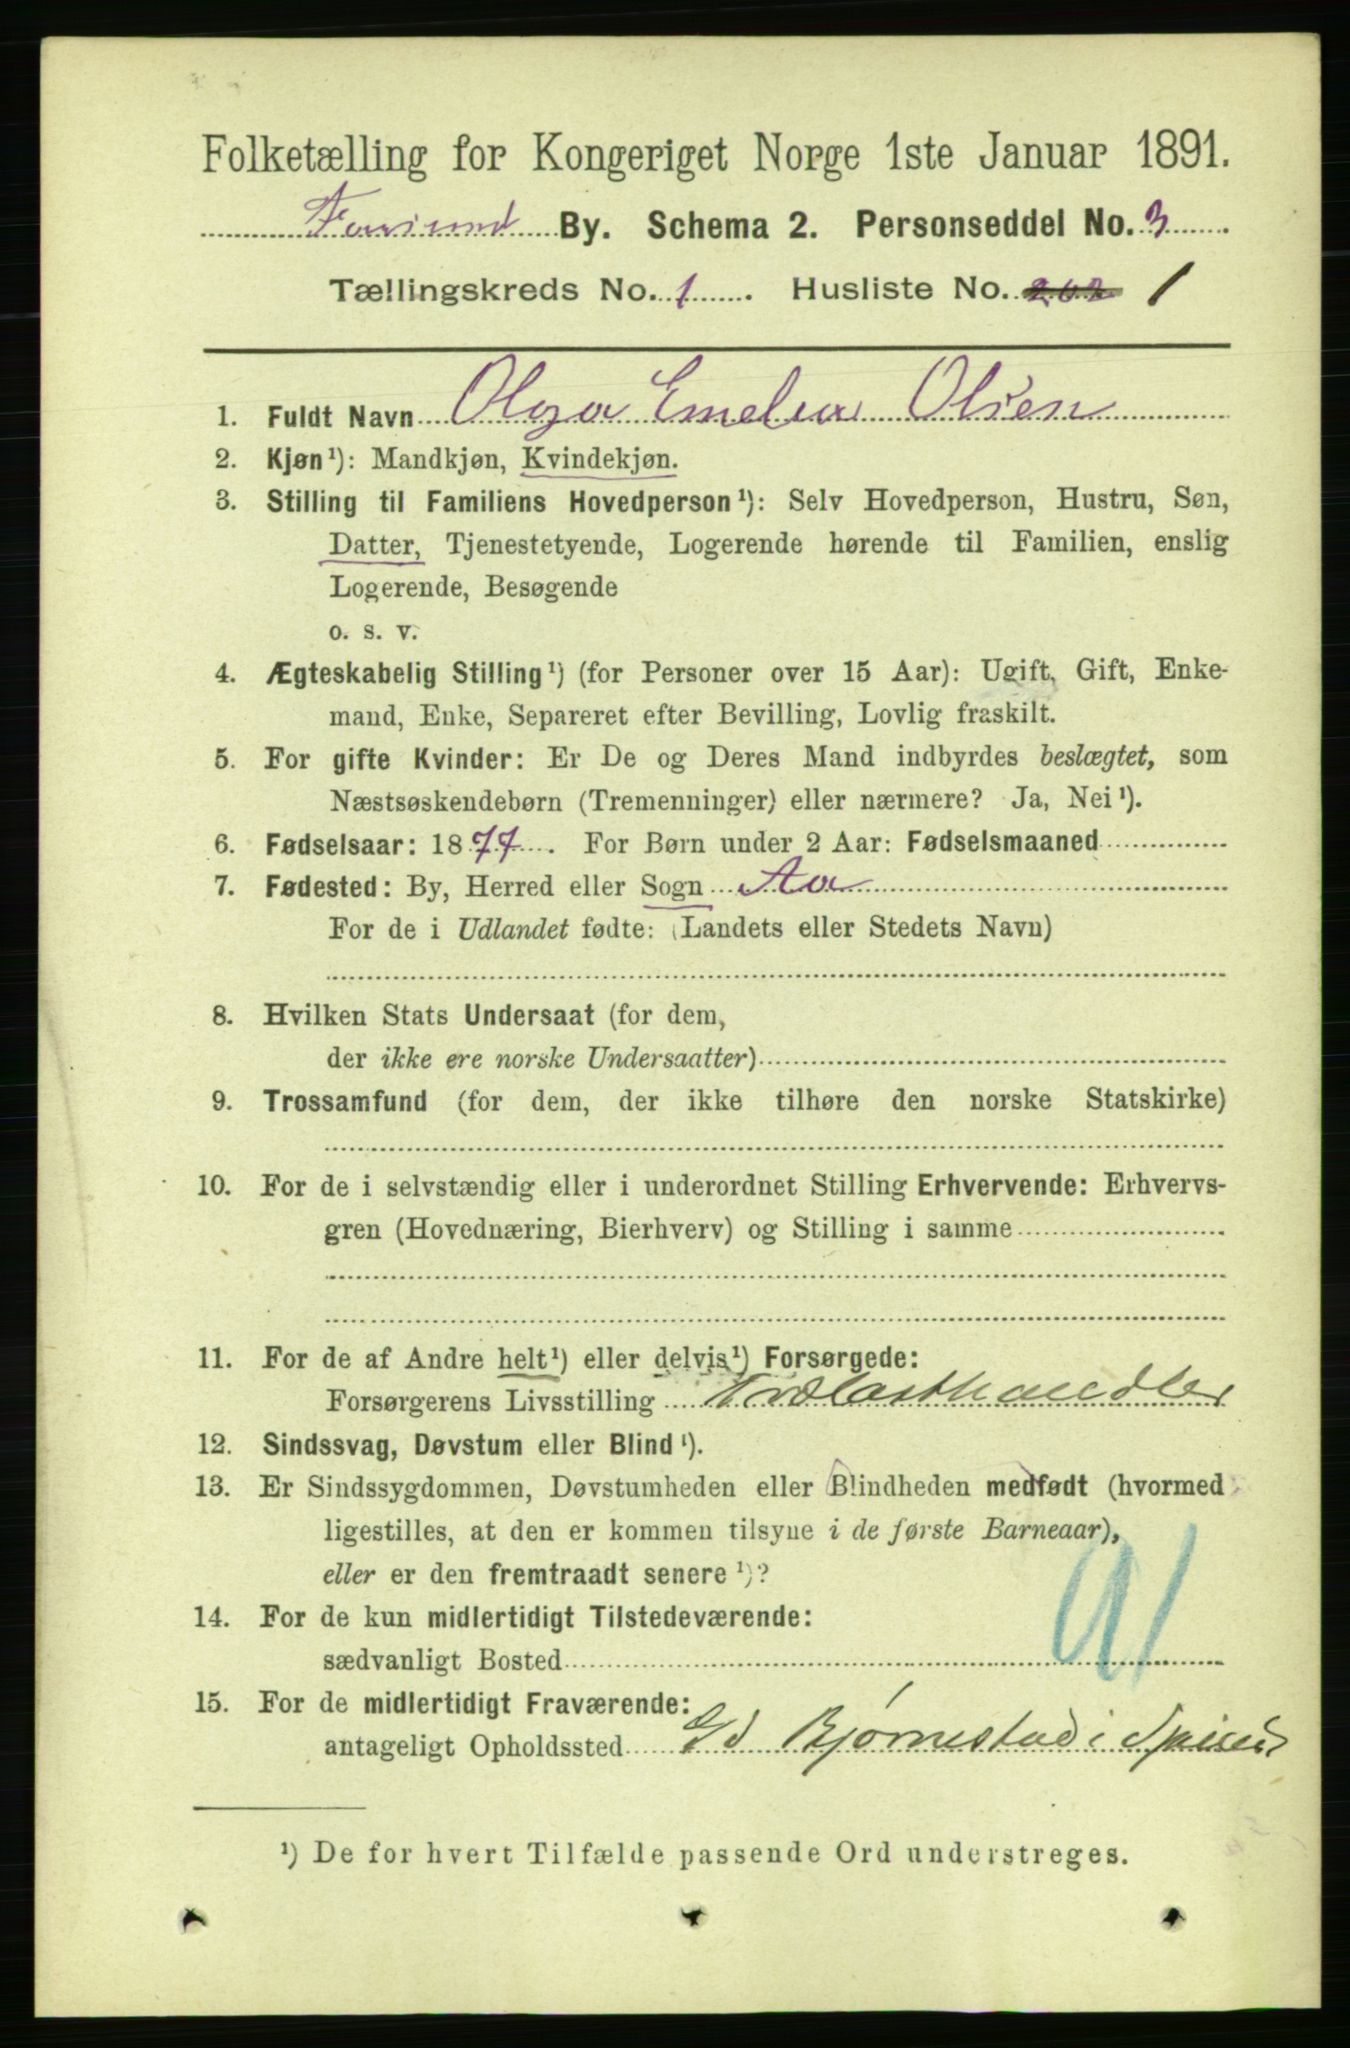 Folketælling for Kongeriget Norge 1ste Januar 1891.
Farsund By. Schema 2. Personseddel No. 3
Tællingskreds No. 1. Husliste No. 202 1
1. Fuldt Navn Olga Emelia Olsen
2. Kjøn¹): Mandkjøn, Kvindekjøn.
3. Stilling til Familiens Hovedperson¹): Selv Hovedperson, Hustru, Søn,
Datter, Tjenestetyende, Logerende hørende til Familien, enslig
Logerende, Besøgende
o. s. v.
4. Ægteskabelig Stilling¹) (for Personer over 15 Aar): Ugift, Gift, Enke-
mand, Enke, Separeret efter Bevilling, Lovlig fraskilt.
5. For gifte Kvinder: Er De og Deres Mand indbyrdes beslægtet, som
Næstsøskendebørn (Tremenninger) eller nærmere? Ja, Nei¹).
6. Fødselsaar: 1877. For Børn under 2 Aar: Fødselsmaaned
7. Fødested: By, Herred eller Sogn Aa
For de i Udlandet fødte: (Landets eller Stedets Navn)
8. Hvilken Stats Undersaat (for dem,
der ikke ere norske Undersaatter)
9. Trossamfund (for dem, der ikke tilhøre den norske Statskirke)
10. For de i selvstændig eller i underordnet Stilling Erhvervende: Erhvervs-
gren (Hovednæring, Bierhverv) og Stilling i samme
11. For de af Andre helt¹) eller delvis¹) Forsørgede:
Forsørgerens Livsstilling Trælasthandler
12. Sindssvag, Døvstum eller Blind¹).
13. Er Sindssygdommen, Døvstumheden eller Blindheden medfødt (hvormed
ligestilles, at den er kommen tilsyne i de første Barneaar),
eller er den fremtraadt senere¹)?
14. For de kun midlertidigt Tilstedeværende:
sædvanligt Bosted
91
15. For de midlertidigt Fraværende:
antageligt Opholdssted Gd Bjørnestad i
¹) De for hvert Tilfælde passende Ord understreges.